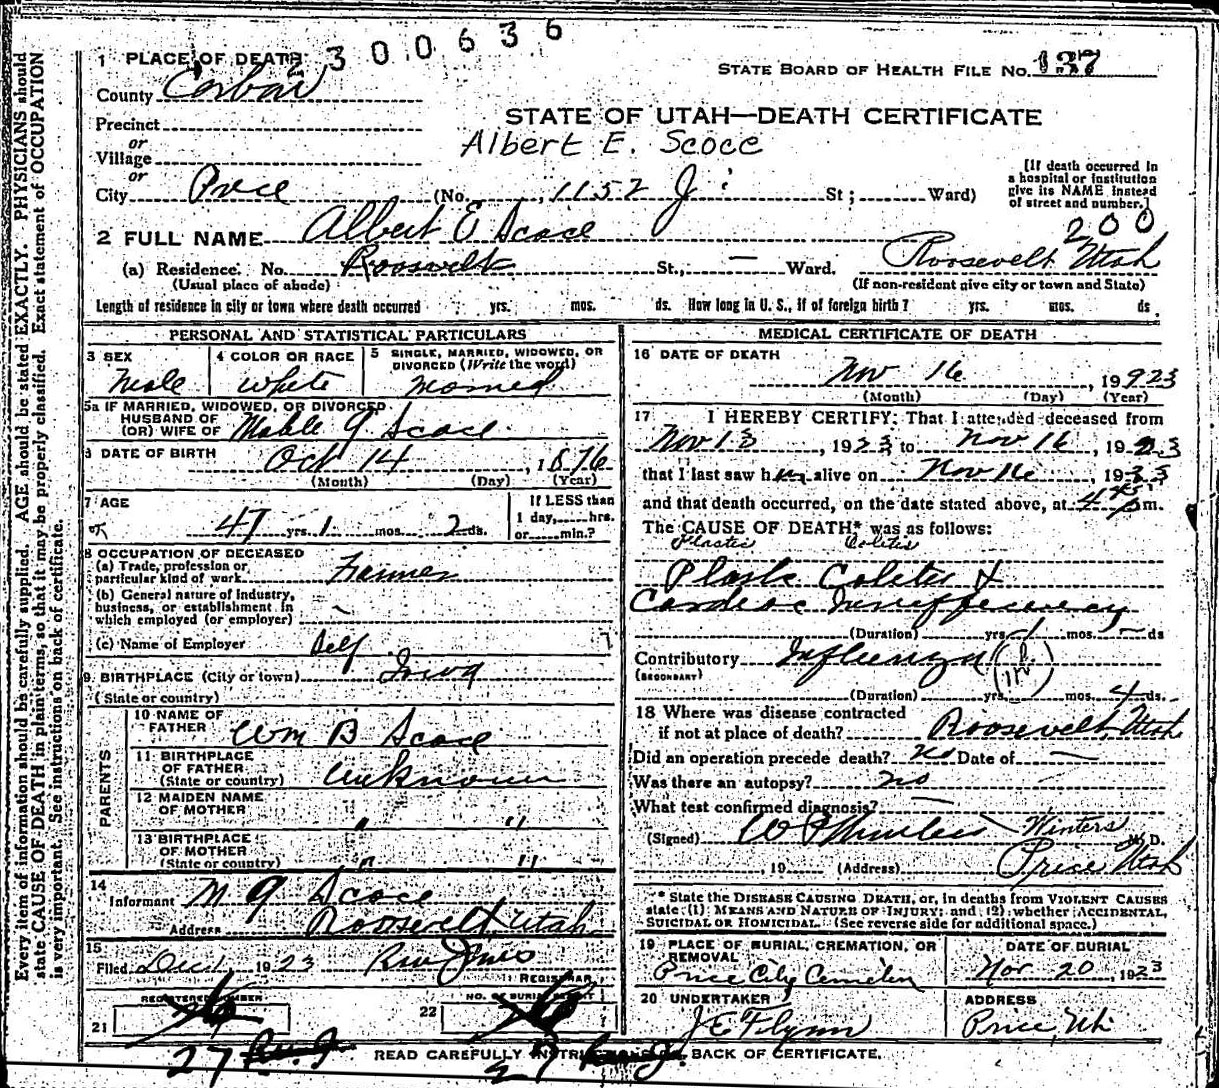 2300636
1 PLACE OF DEATH
STATE BOARD OF HEALTH FILE No. 137
County Carbon
STATE OF UTAH—DEATH CERTIFICATE
Precinct
or
Village
Albert E. Scoce
or
City Price (No. 1152 J St; Ward)
[If death occurred in
a hospital or institution
give its NAME instead
of street and number.]
200
2 FULL NAME Albert E Scace
(a) Residence. No. Roosvelt St., — Ward. Roosevelt Utah
(Usual place of abode) (If non-resident give city or town and State)
Length of residence in city or town where death occurred yrs. mos. ds. How long in U. S., if of foreign birth? yrs. mos. ds.
PERSONAL AND STATISTICAL PARTICULARS
3 SEX
Male
4 COLOR OR RACE
White
5 SINGLE, MARRIED, WIDOWED, OR
DIVORCED (Write the word)
Married
5a IF MARRIED, WIDOWED, OR DIVORCED
HUSBAND OF
(OR) WIFE OF Mable G Scace
6 DATE OF BIRTH
Oct 14, 1876
(Month) (Day) (Year)
7 AGE
47 yrs. 1 mos. 2 ds.
If LESS than
1 day, hrs.
or min.?
8 OCCUPATION OF DECEASED
(a) Trade, profession or
particular kind of work Farmer
(b) General nature of Industry,
business, or establishment in
which employed (or employer) —
(c) Name of Employer Self
9. BIRTHPLACE (City or town) Iowa
(State or country)
PARENTS
10 NAME OF
FATHER Wm B Scace
11 BIRTHPLACE
OF FATHER
(State or country) Unknown
12 MAIDEN NAME
OF MOTHER " "
13 BIRTHPLACE
OF MOTHER
(State or country) " "
14
Informant M G Scace
Address Roosevelt Utah
15
Filed Dec 1 1923
REGISTRAR
REGISTERED NUMBER
21
27
NO. OF BURIAL PERMIT
22
27
MEDICAL CERTIFICATE OF DEATH
16 DATE OF DEATH
Nov 16, 1923
(Month) (Day) (Year)
17 I HEREBY CERTIFY: That I attended deceased from
Nov 13, 1923 to Nov 16, 1923
that I last saw him alive on Nov 16, 1923
and that death occurred, on the date stated above, at 4 45 p m.
The CAUSE OF DEATH* was as follows:
Plastic Colitis
Plastic Colitis &
Cardiac Insufficiency
(Duration) yrs. 1 mos. — ds
Contributory Influenza
(SECONDARY)
(Duration) yrs. mos. 4 ds.
18 Where was disease contracted
if not at place of death? Roosevelt Utah
Did an operation precede death? no Date of —
Was there an autopsy? no
What test confirmed diagnosis? —
(Signed) W P Winters Winters M. D.
, 19 (Address) Price Utah
* State the DISEASE CAUSING DEATH, or, in deaths from VIOLENT CAUSES
state (1) MEANS AND NATURE OF INJURY; and (2) whether ACCIDENTAL,
SUICIDAL OR HOMICIDAL. (See reverse side for additional space.)
19 PLACE OF BURIAL, CREMATION, OR
REMOVAL
Price City Cemetery
DATE OF BURIAL
Nov 20, 1923
20 UNDERTAKER
J E Flynn
ADDRESS
Price Ut
READ CAREFULLY INSTRUCTIONS ON BACK OF CERTIFICATE.
Every item of information should be carefully supplied. AGE should be stated EXACTLY. PHYSICIANS should
state CAUSE OF DEATH in plain terms, so that it may be properly classified. Exact statement of OCCUPATION
is very important. See instructions on back of certificate.